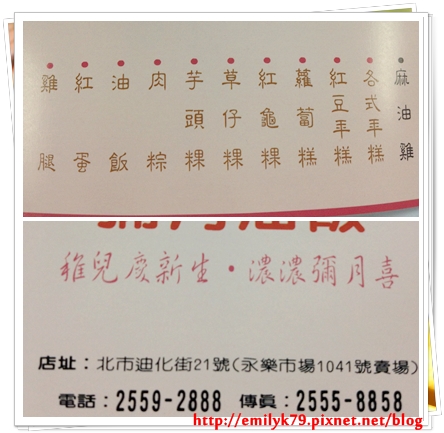 麻油雞
各式年糕
紅豆年糕
蘿蔔糕
紅龜粿
草仔粿
芋頭粿
肉粽
油飯
紅蛋
雞腿
稚兒慶新生・濃濃彌月喜
店址：北市迪化街21號(永樂市場1041號賣場)
電話：2559-2888 傳眞：2555-8858
http://emilyk79.pixnet.net/blog